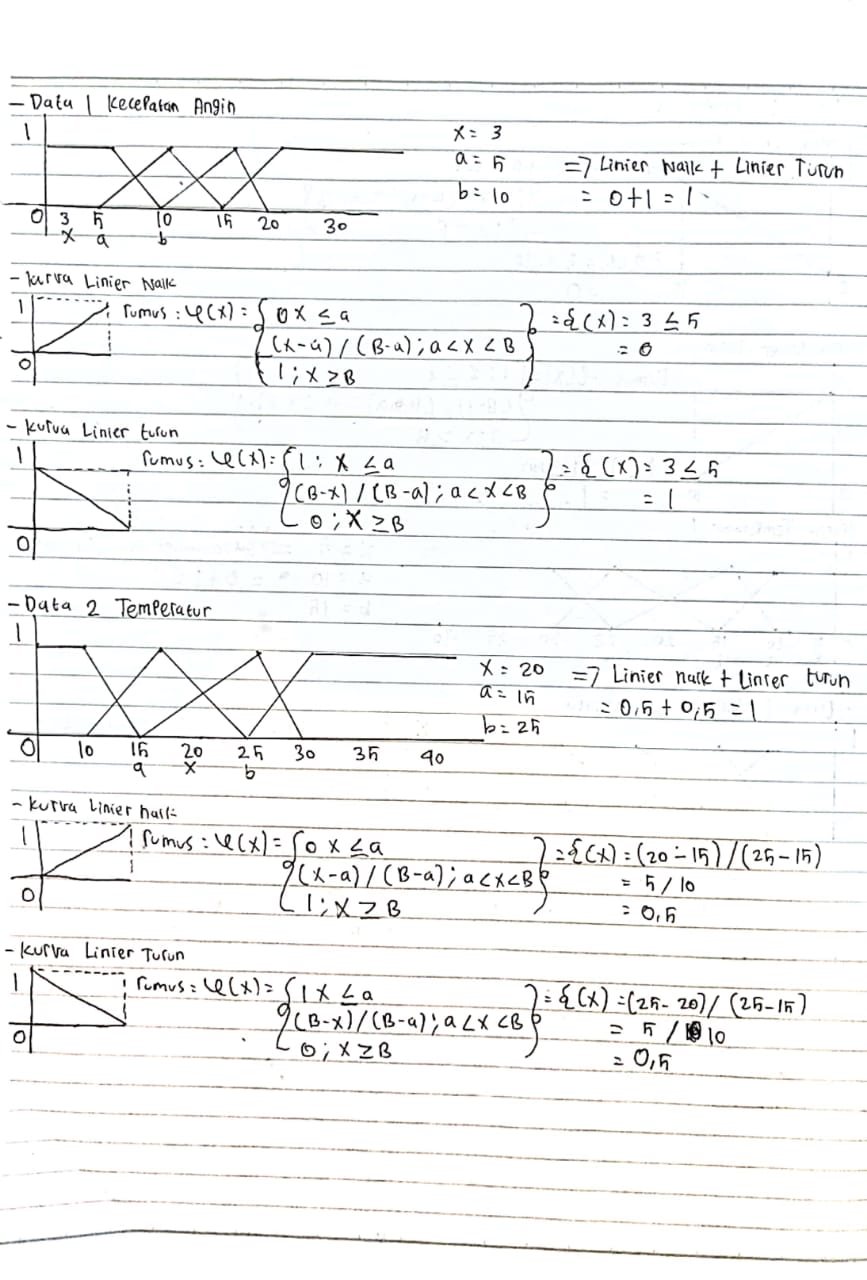 - Data 1 Kecepatan Angin
1
0 3 5 10 15 20 30
x a b
x = 3
a = 5
b = 10
=> Linier Naik + Linier Turun
= 0+1 = 1
- kurva Linier Naik
1
0
rumus : φ(x) = { 0 x ≤ a
(x-a) / (B-a) ; a < x < B
1 ; x ≥ B }
= { (x) = 3 ≤ 5
= 0
- kurva Linier turun
1
0
rumus : φ(x) = { 1 ; x ≤ a
(B-x) / (B-a) ; a < x < B
0 ; x ≥ B }
= { (x) = 3 ≤ 5
= 1
- Data 2 Temperatur
1
0 10 15 20 25 30 35 40
a x b
x = 20
a = 15
b = 25
=> Linier naik + linier turun
= 0,5 + 0,5 = 1
- kurva Linier naik
1
0
rumus : φ(x) = { 0 x ≤ a
(x-a) / (B-a) ; a < x < B
1 ; x ≥ B }
= { (x) = (20-15) / (25-15)
= 5 / 10
= 0,5
- kurva Linier Turun
1
0
rumus = φ(x) = { 1 x ≤ a
(B-x) / (B-a) ; a < x < B
0 ; x ≥ B }
= { (x) = (25-20) / (25-15)
= 5 / 10
= 0,5